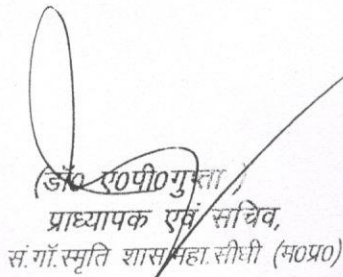 (डॉ० ए०पी०गुप्ता )
प्राध्यापक एवं सचिव,
सं.गाॅ.स्मृति शास.महा.सीधी (म०प्र०)